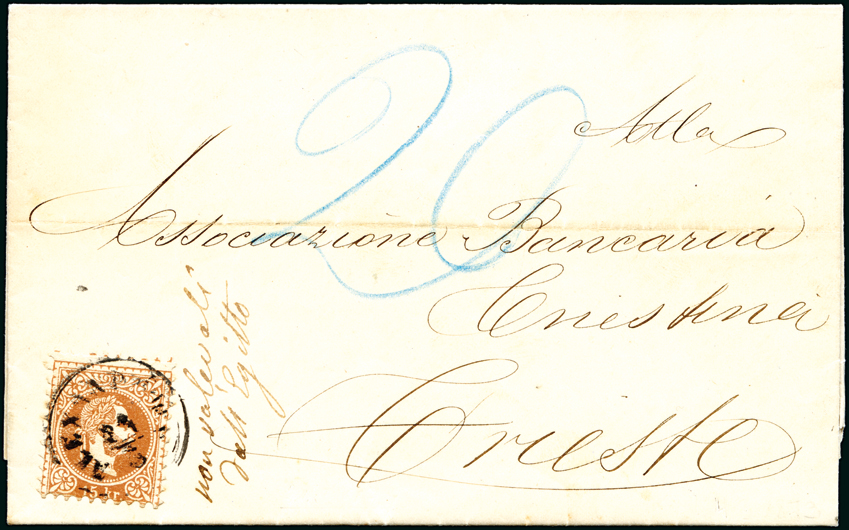 20
Alla
Associazione Bancaria
Triestina
Trieste
non valevoli
dall Egitto